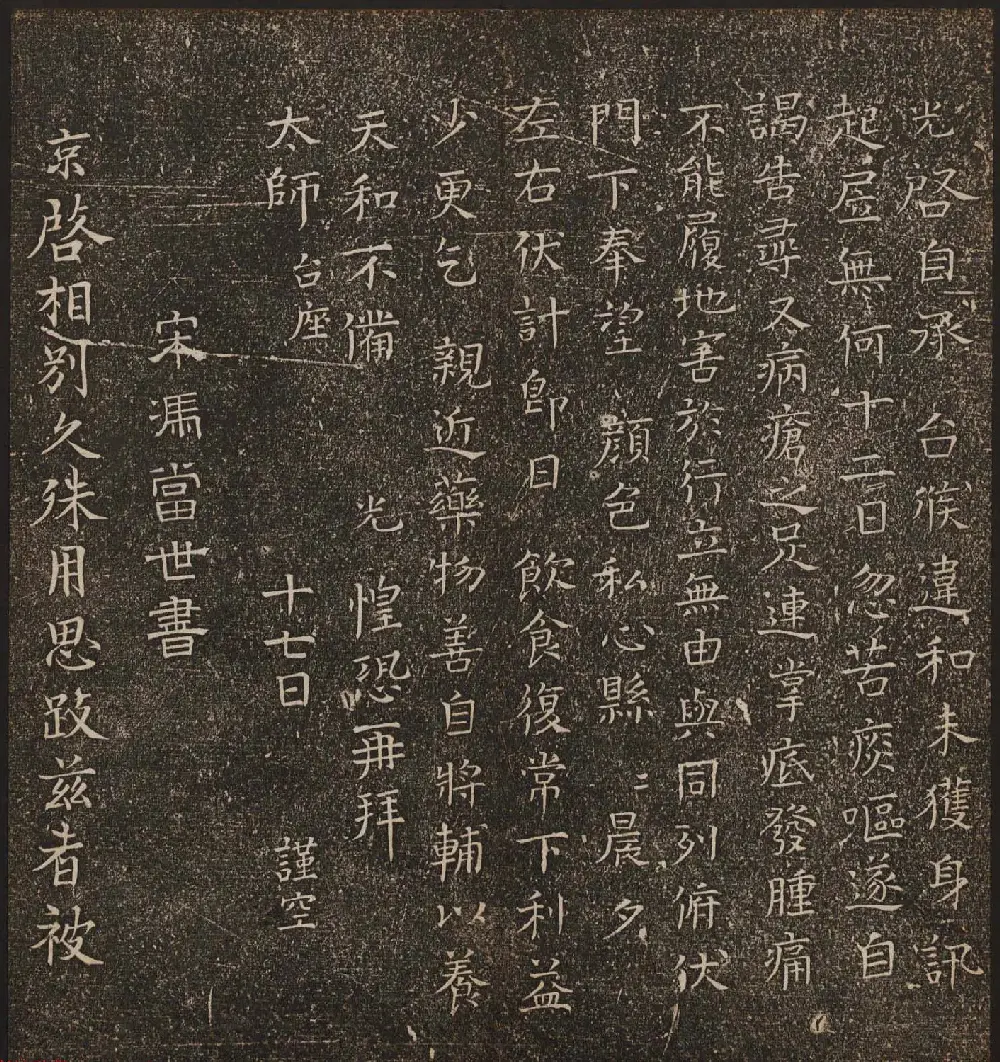 光啓自承　台候違和未獲身訊
起居無何十二日忽苦痰嘔遂自
謁告尋又病瘡之足連掌底發腫痛
不能履地害於行立無由與同列俯伏
門下奉望　顏色私心縣〻晨夕
左右伏計即日　飲食復常下利益
少更乞　親近藥物善自將輔以養
天和不備　光　惶恐再拜
太師　台座　十七日　謹空
宋馮當世書
京啓相別久殊用思跂茲者被